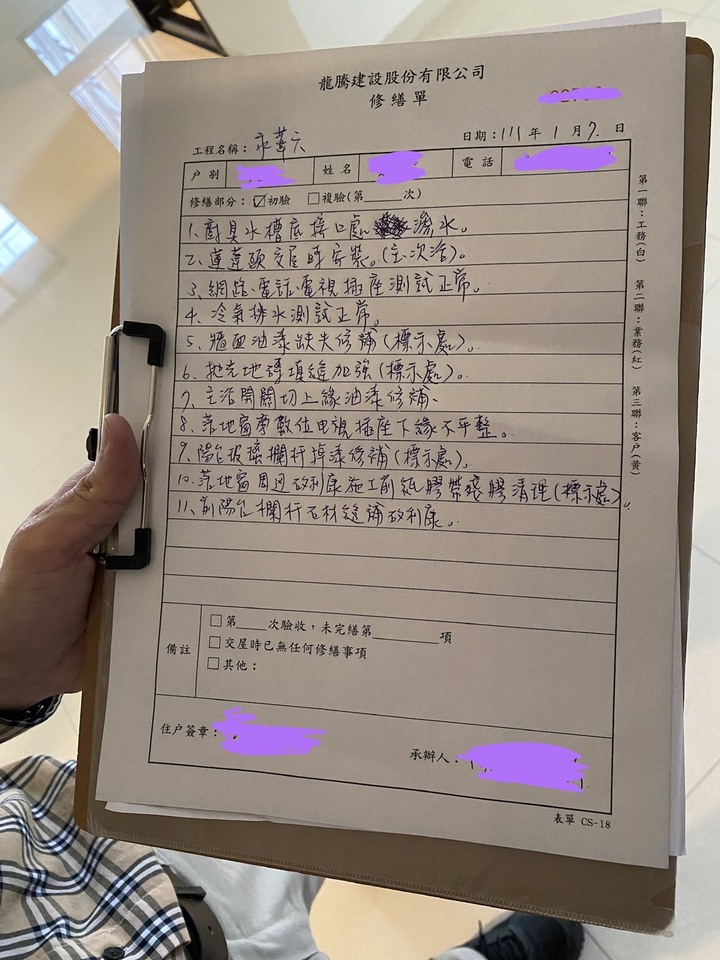 龍騰建設股份有限公司
修繕單
工程名稱：永華六
日期：111年1月7.日
戶別
姓名
電話
修繕部分：☑初驗 □複驗(第 次)
1.廚具水槽底接口處 滲水。
2.蓮蓬頭交屋時安裝。(主.次浴)。
3、網路.電話.電視插座測試正常。
4.冷氣排水測試正常。
5、牆面油漆缺失修補(標示處)。
6.拋光地磚填縫加強(標示處)。
7、主浴開關切上緣油漆修補、
8.落地窗旁數位电視插座下緣不平整。
9.陽台玻璃欄杆掉漆修補(標示處)。
10.落地窗周週矽利康施工前紙膠帶殘膠清理(標示處)。
11、前陽台欄杆石材縫補矽利康。
備註
□第 次驗收，未完繕第 項
□交屋時已無任何修繕事項
□其他：
住戶簽章：
承辦人：
表單 CS-18
第一聯：工務(白)
第二聯：業務(紅)
第三聯：客戶(黃)